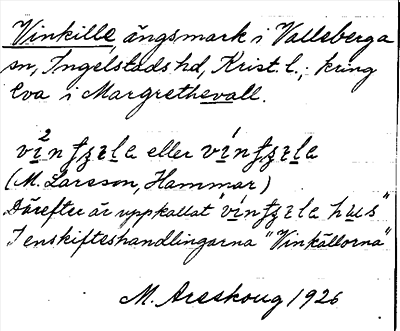 Vinkille, ängsmark i Valleberga
sn, Ingelstads hd, Krist. l.; kring
Eva i Margrethevall.
eller
(M. Larsson, Hammar)
Därefter är uppkallat
I enskifteshandlingarna "Vinkällorna"
M. Areskoug 1926